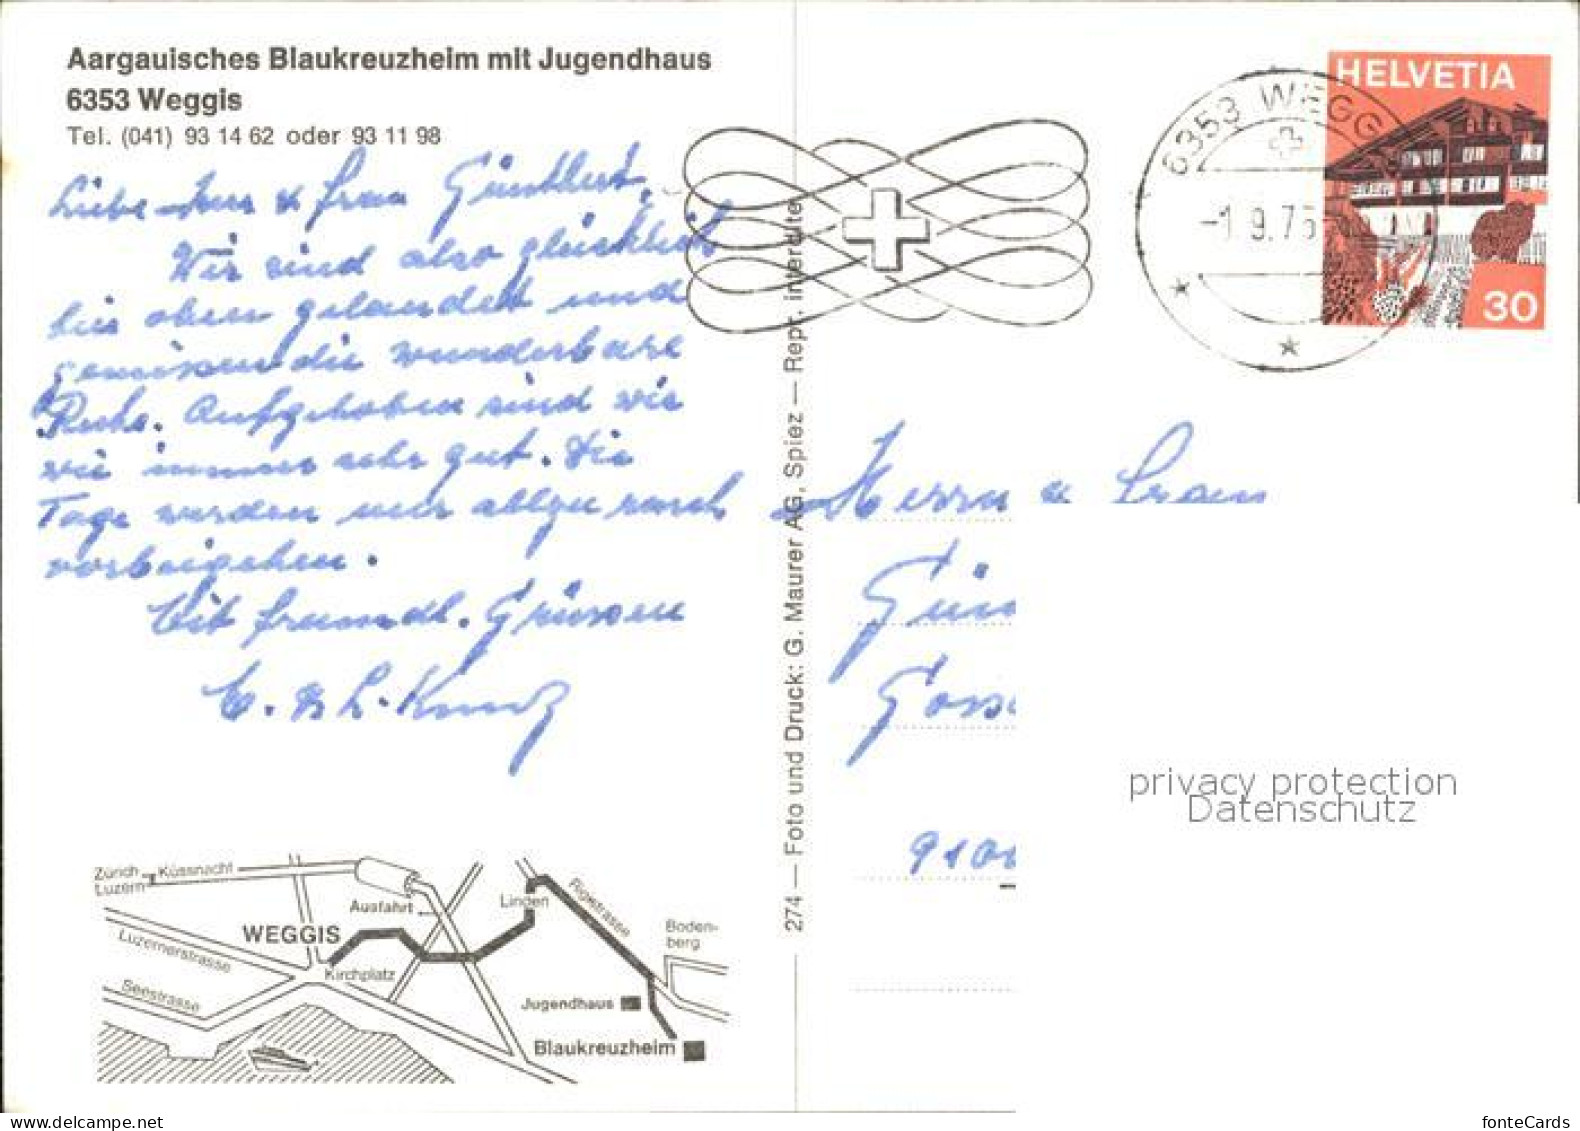 Aargauisches Blaukreuzheim mit Jugendhaus
6353 Weggis
Tel. (041) 93 14 62 oder 93 11 98
Liebe Herr & Frau
Wir sind also glücklich
hier oben gelandet und
geniessen die wunderbare
Ruhe. Aufgehoben sind wir
wie immer sehr gut. Die
Tage werden nur allzu rasch
vorbeigehen.
Mit freundl. Grüssen
E. & L. Kunz
274 — Foto und Druck: G. Maurer AG, Spiez — Repr. interdite
6353 WEGG
-1.9.75
HELVETIA
30
Herrn & Frau
Gün
Goss
privacy protection
Datenschutz
Zürich
Luzern
Küssnacht
Ausfahrt
Linden
Rigistrasse
WEGGIS
Boden-
berg
Luzernerstrasse
Kirchplatz
Seestrasse
Jugendhaus
Blaukreuzheim
fonteCards